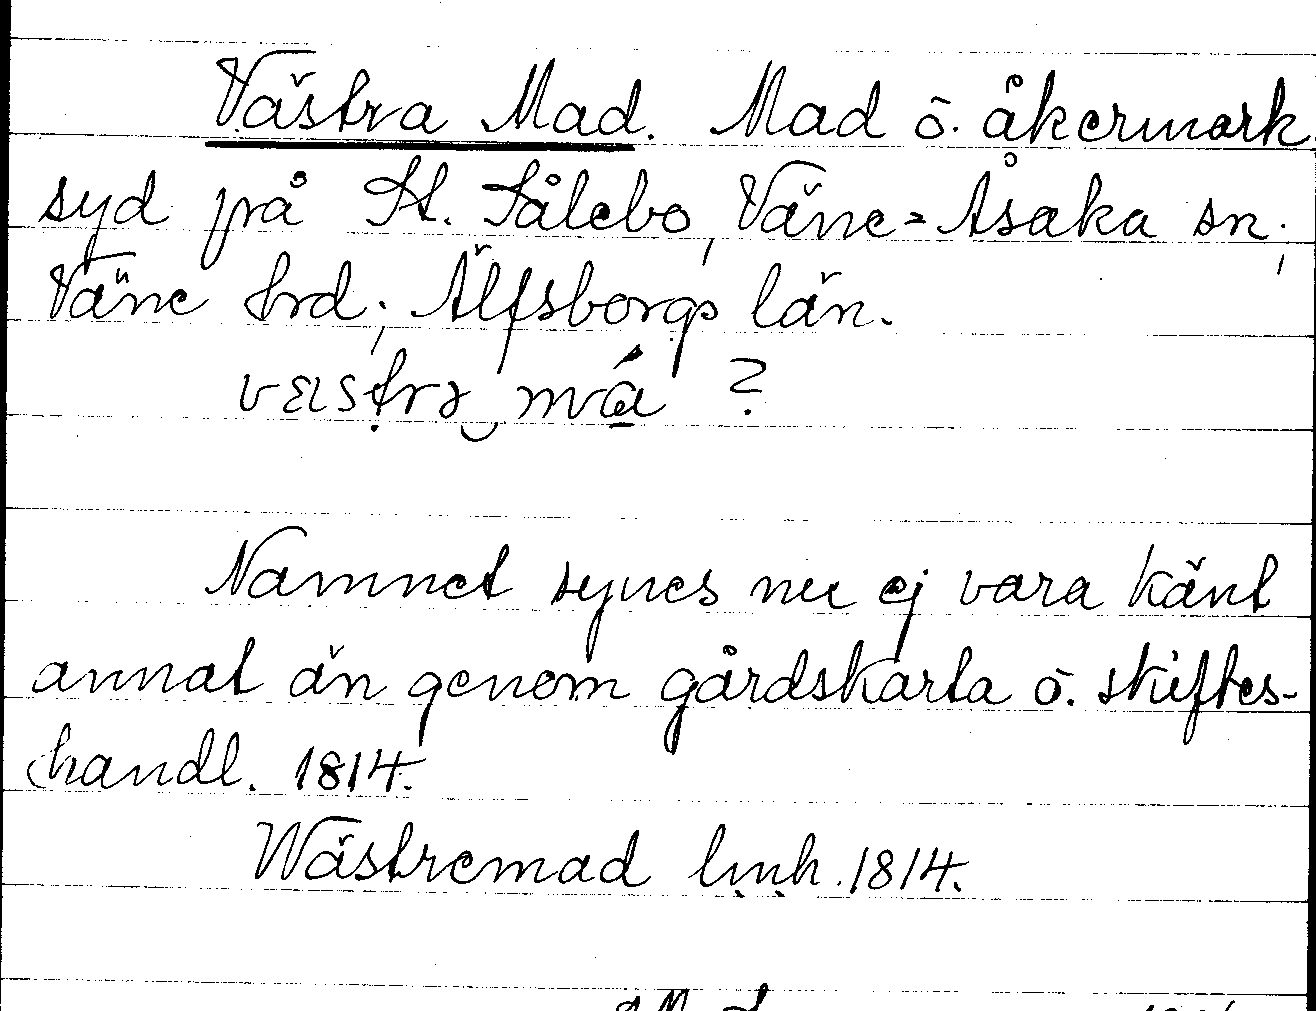 Västra Mad. Mad ō. åkermark
syd från St. Sålebo, Väne-Åsaka sn;
Väne hrd; Älfsborgs län.
Namnet synes nu ej vara känt
annat än genom gårdskarta ō. skiftes-
handl. 1814.
Wästremad lmh. 1814.